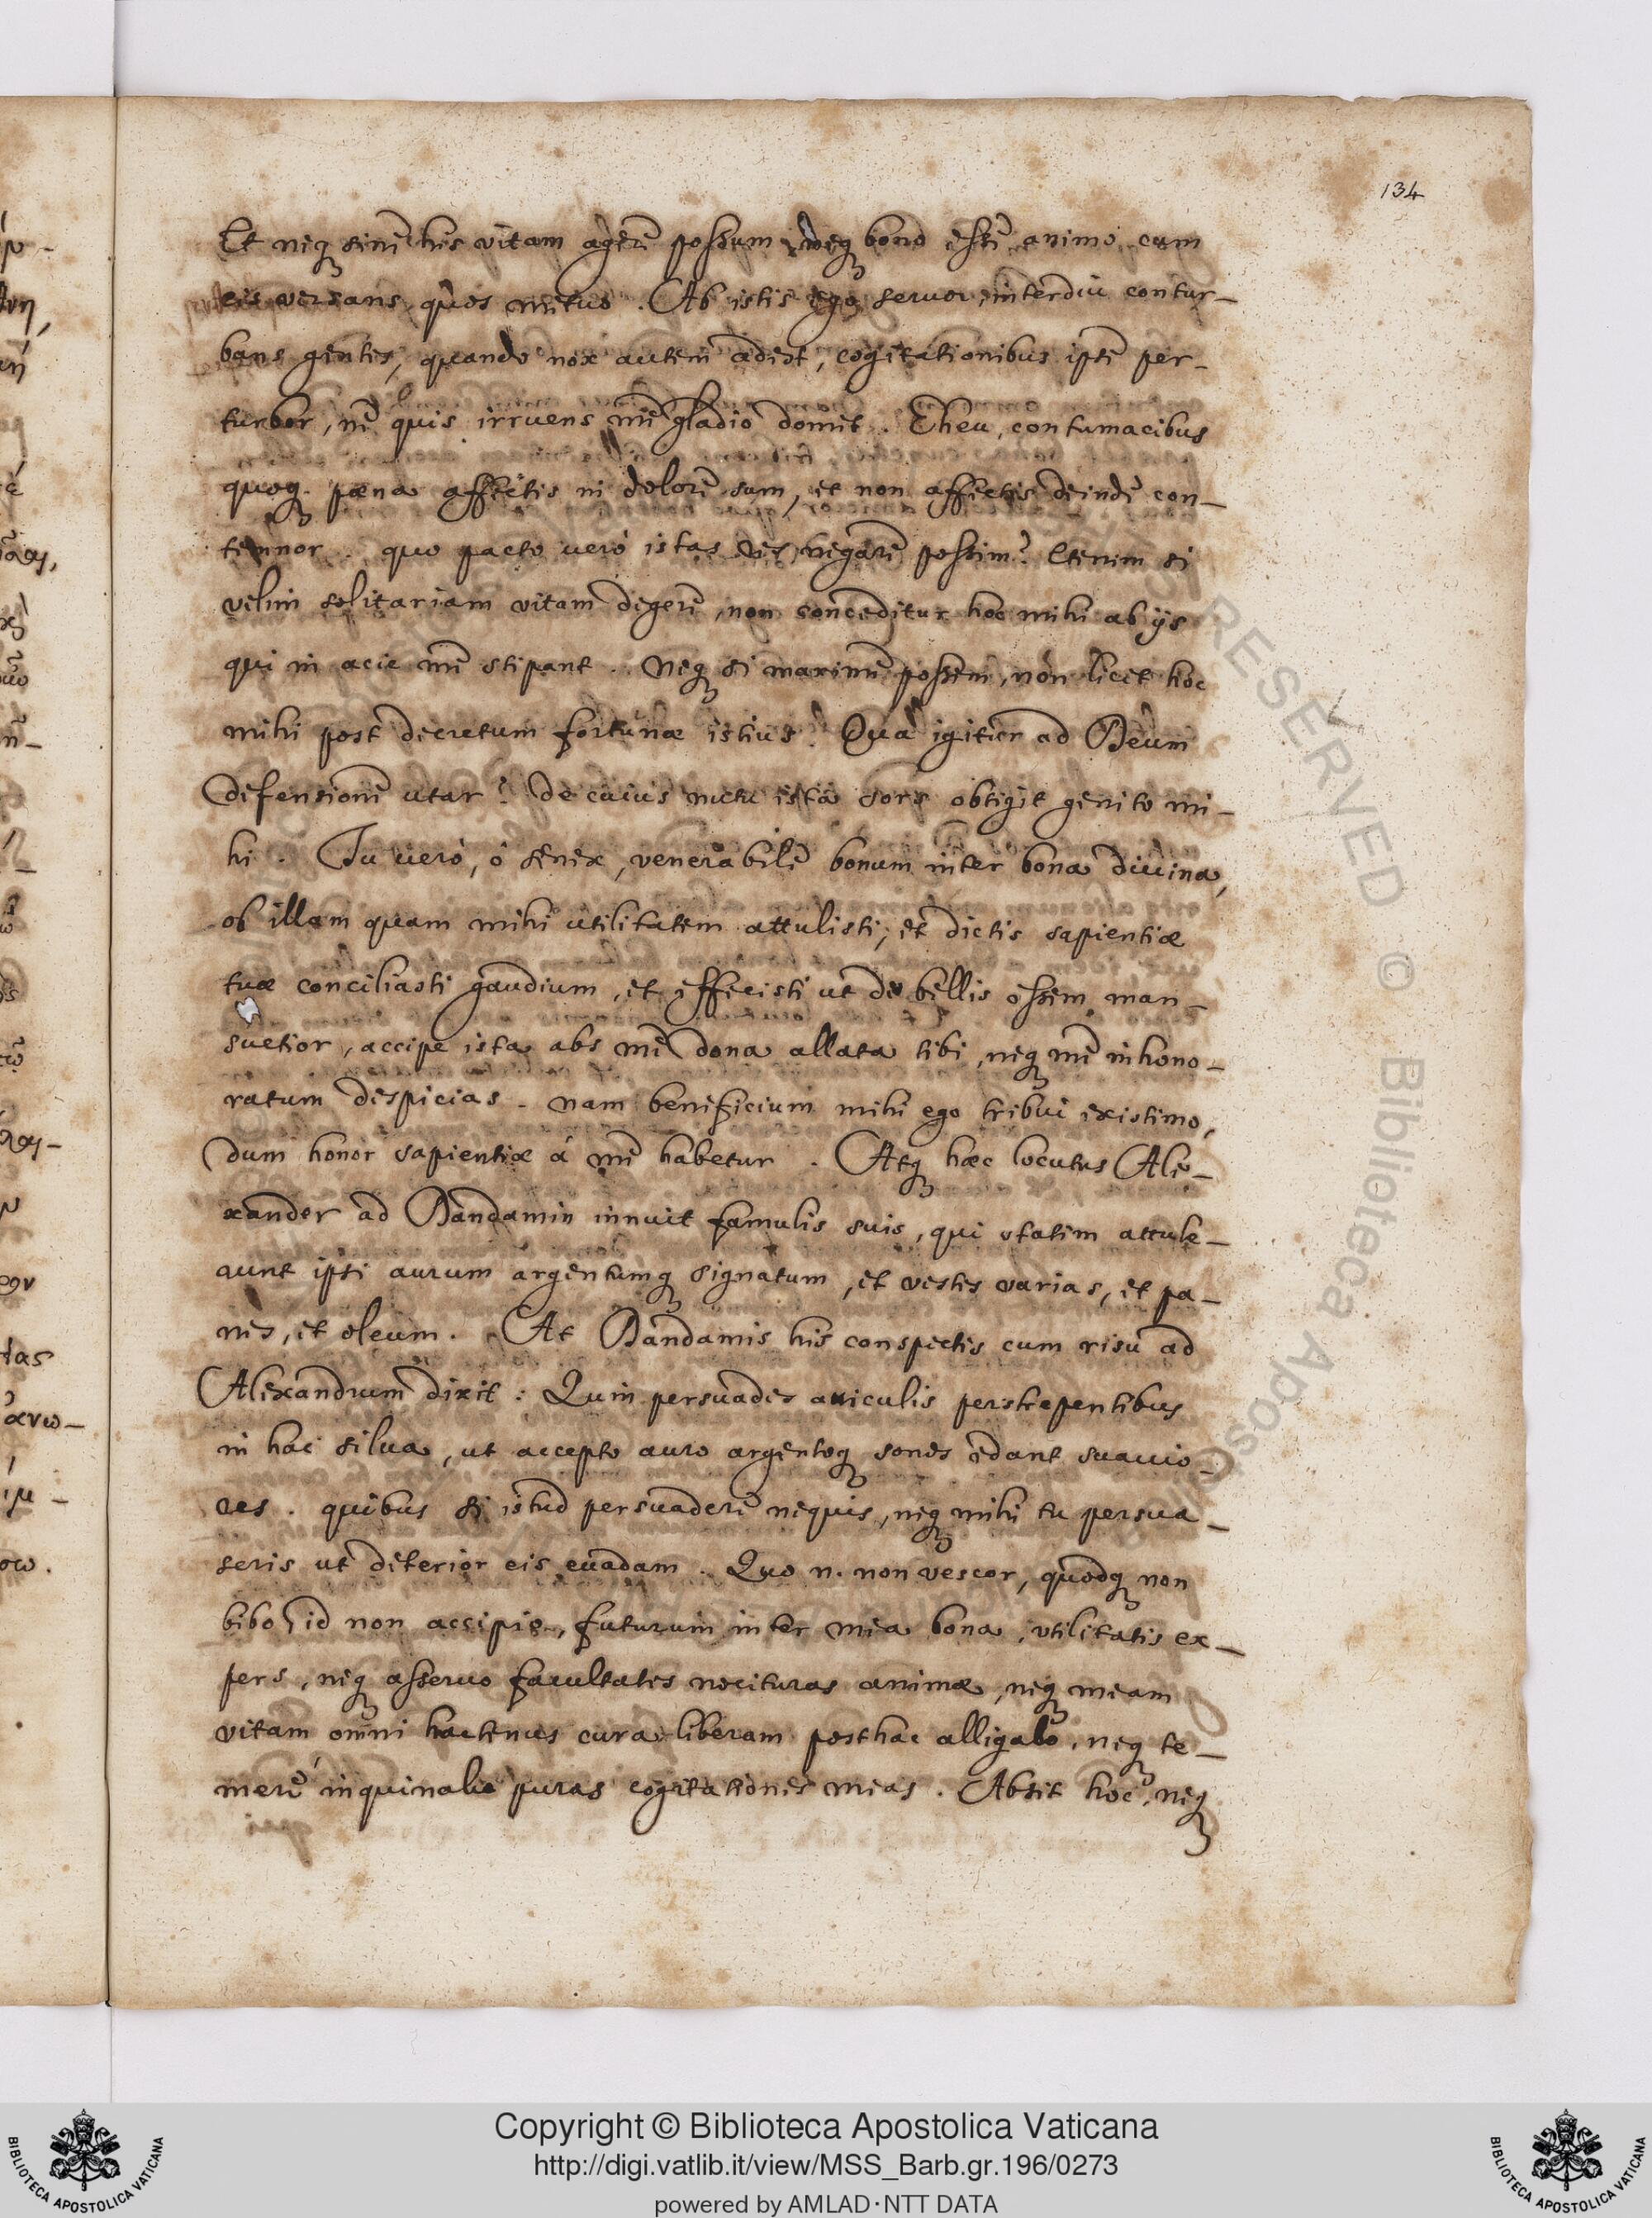 134
Et neq sine his vitam agere possum, neq bono esse animo cum
eis versans quos metuo. Ab istis ego servor, interdiu contur-
bans gentes, quando nox autem adest, cogitationibus ipse per-
turbor, ne quis irruens me gladio domet. Eheu, contumacibus
quoq. pæna affectis in dolore sum, et non affectis deinde con-
temnor. quo pacto verò istas res negare possim? Etenim si
velim solitariam vitam degere, non conceditur hoc mihi ab ijs
qui in acie me stipant. Neq si maxime possem, non licet hoc
mihi post decretum fortunæ istius. Quà igitur ad Deum
defensione utar? De cuius metu ista sors obtigit genito mi-
hi. Tu verò, ò senex, venerabile bonum inter bona divina,
ob illam quam mihi utilitatem attulisti, et dictis sapientiæ
tuæ conciliasti gaudium, et effecisti ut de bellis essem man-
suetior, accipe ista abs me dona allata tibi, neq me inhono-
ratum despicias. nam beneficium mihi ego tribui existimo,
dum honor sapientiæ à me habetur. Atq hæc locutus Ale-
xander ad Dandamin innuit famulis suis, qui statim attule-
runt ipsi aurum argentumq signatum, et vestes varias, et pa-
nes, et oleum. At Dandamis his conspectis cum risu ad
Alexandrum dixit: Quin persuades aviculis perstrepentibus
in hac silva, ut accepto auro argentoq sonos edant suavio-
res. quibus si istud persuadere nequis, neq mihi tu persua-
seris ut deterior eis evadam. Quo n. non vescor, quodq non
bibo, id non accipio, futurum inter mea bona, utilitatis ex-
pers, neq asservo facultates nocituras animæ, neq meam
vitam omni hactenus cura liberam posthac alligabo, neq te-
merè inquinabo puras cogitationes meas. Absit hoc, neq
Copyright © Biblioteca Apostolica Vaticana
http://digi.vatlib.it/view/MSS_Barb.gr.196/0273
powered by AMLAD·NTT DATA